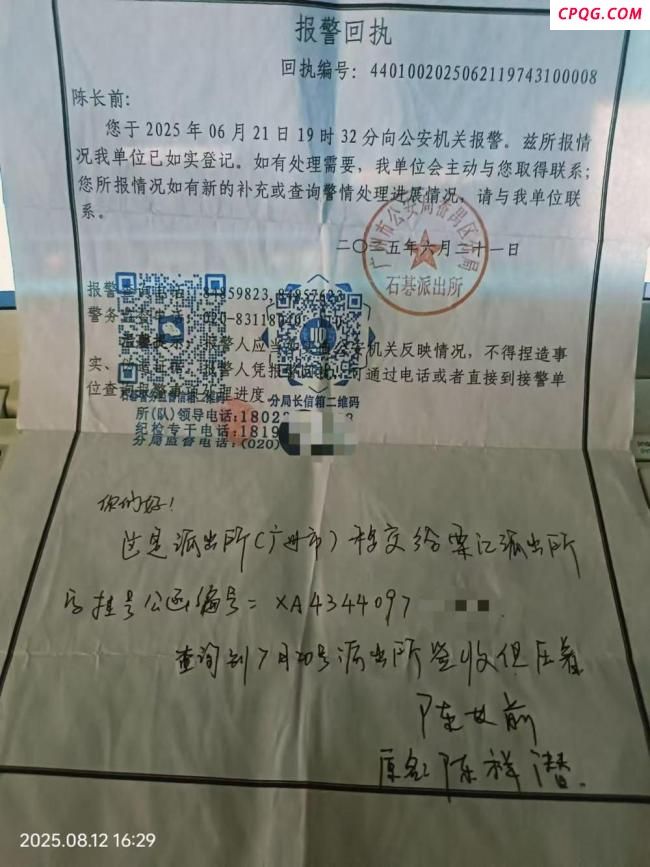 CPQG.COM
报警回执
回执编号：4401002025062119743100008
陈长前：
您于 2025 年 06 月 21 日 19 时 32 分向公安机关报警。兹所报情
况我单位已如实登记。如有处理需要，我单位会主动与您取得联系；
您所报情况如有新的补充或查询警情处理进展情况，请与我单位联
系。
二〇二五年六月二十一日
广州市公安局番禺区分局
石碁派出所
报警
警务监督电话 020-83118
报警人应当 公安机关反映情况，不得捏造事
实、 报警人凭报 可通过电话或者直接到接警单
位查 处理进度
分局长信箱二维码
所(队)领导电话:1802
纪检专干电话:1819
分局监督电话:(020)
你们好！
这是派出所(广州市)移交给 江派出所
挂号公函编号=XA4344097
查询到7月20号派出所签收但压着
陈长前
原名 陈祥潜
2025.08.12 16:29